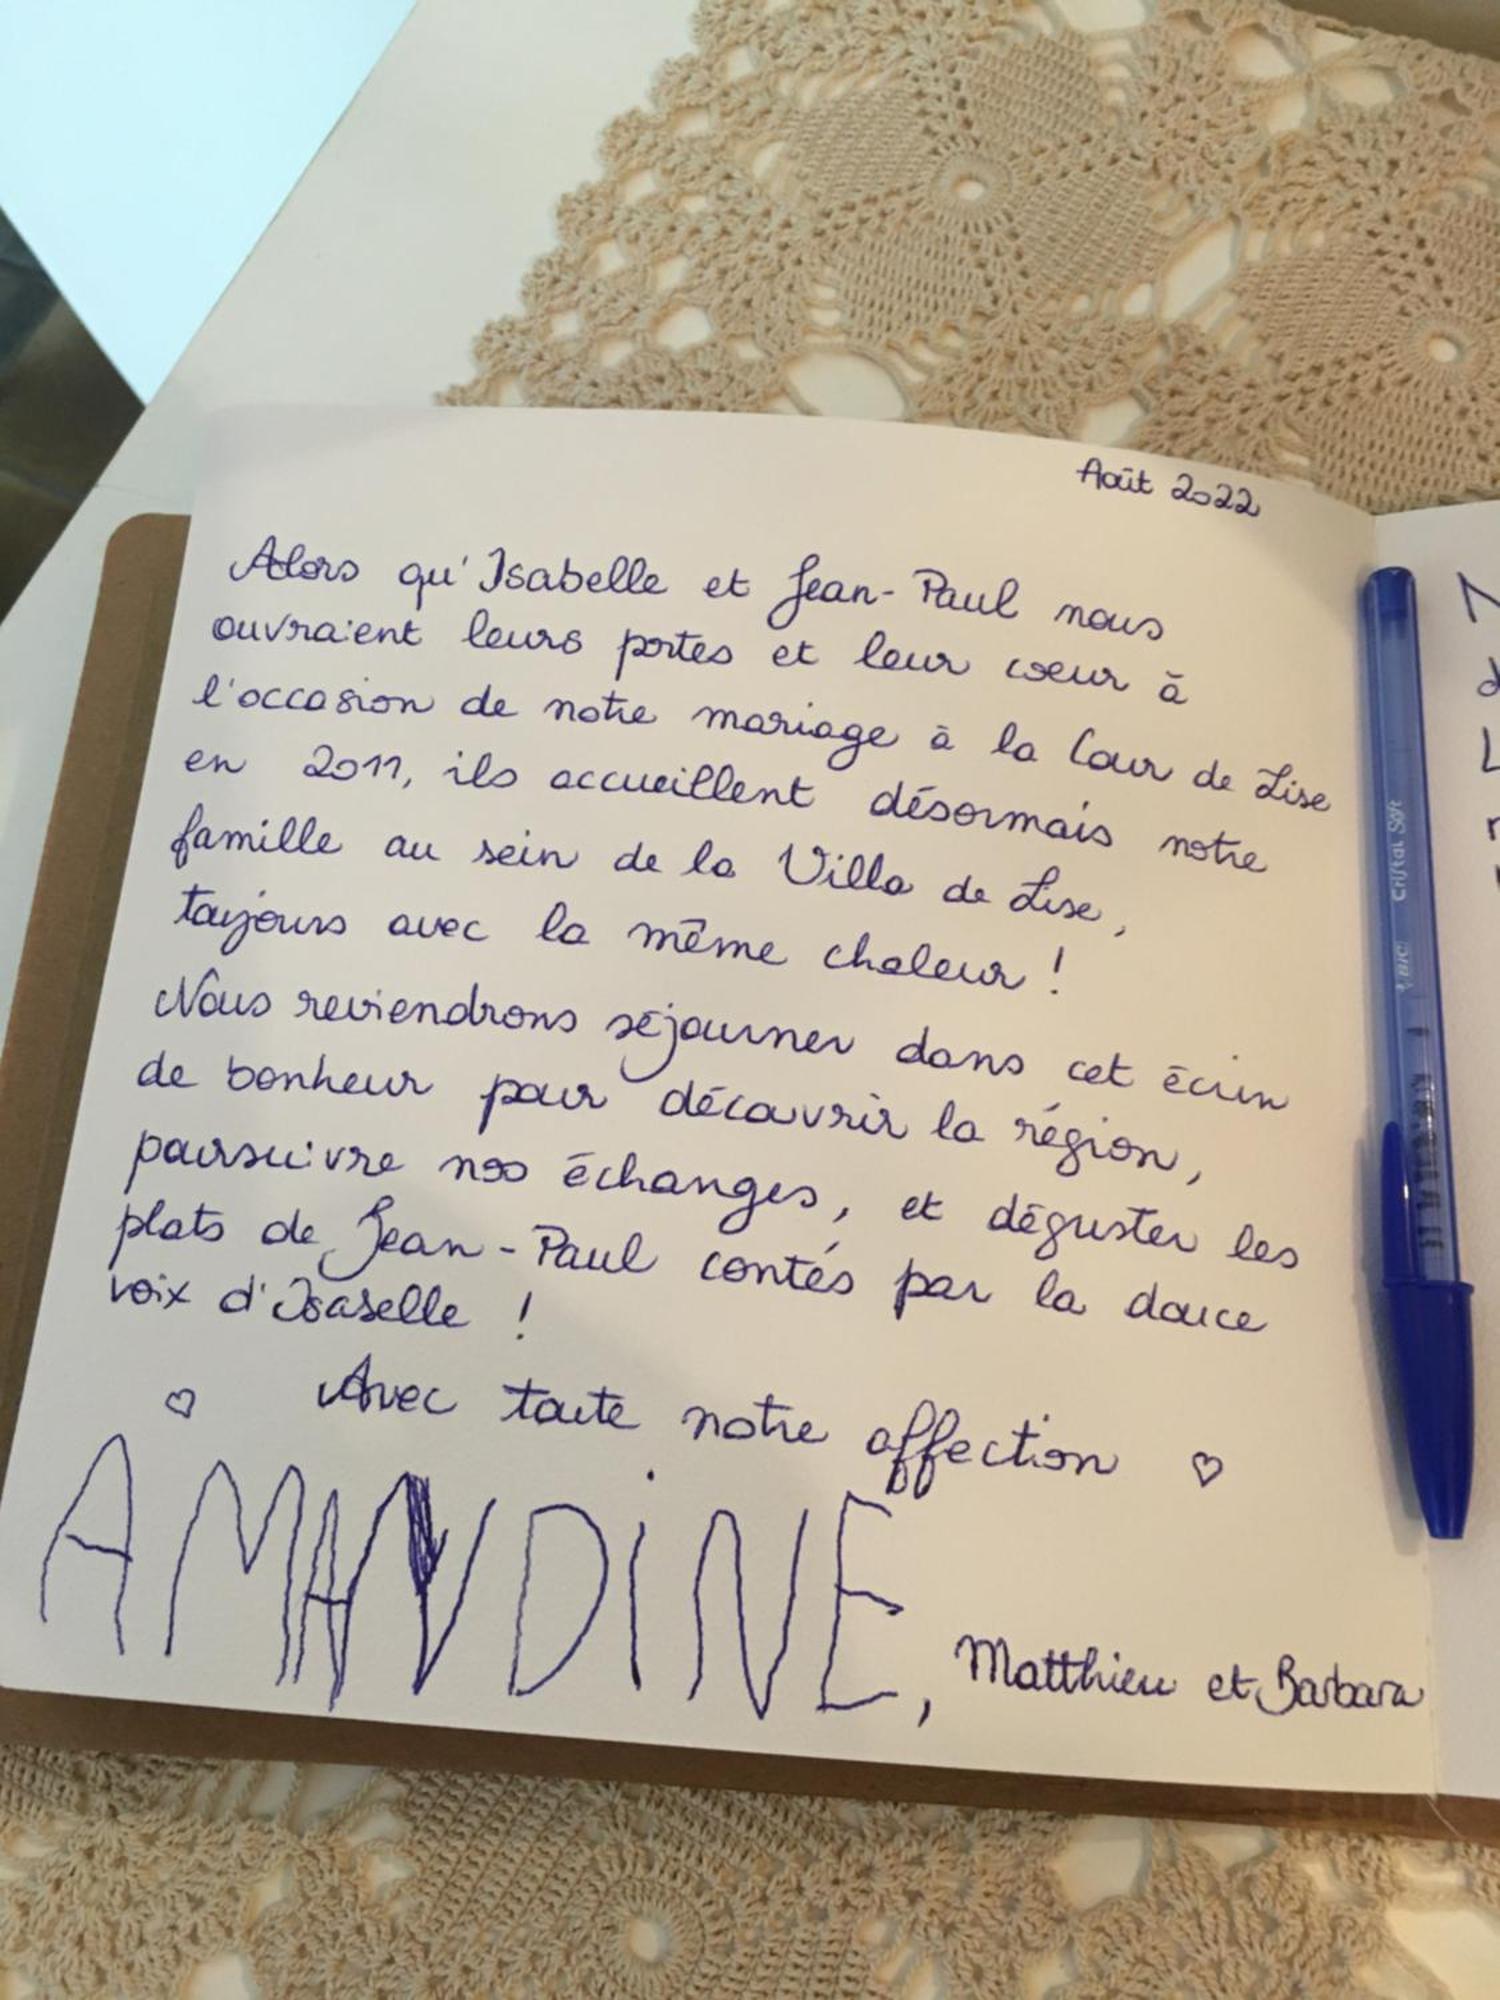 Août 2022
Alors qu'Isabelle et Jean-Paul nous
ouvraient leurs portes et leur coeur à
l'occasion de notre mariage à la Cour de Lise
en 2011, ils accueillent désormais notre
famille au sein de la Villa de Lise,
toujours avec la même chaleur !
Nous reviendrons séjourner dans cet écrin
de bonheur pour découvrir la région,
poursuivre nos échanges, et déguster les
plats de Jean-Paul contés par la douce
voix d'Isabelle !
♡ Avec toute notre affection ♡
AMANDiNE, Matthieu et Barbara
BIC Cristal Soft